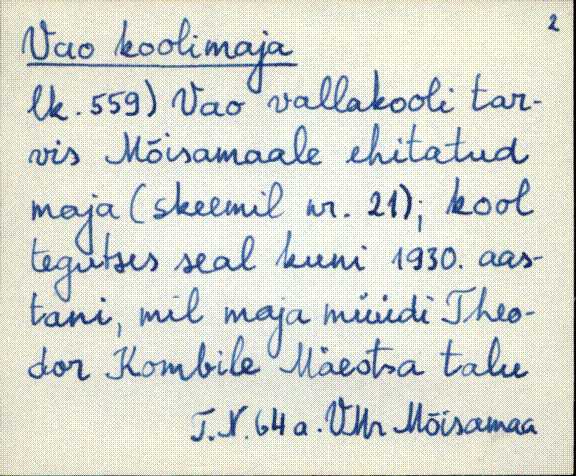 2
Vao koolimaja
lk. 559) Vao vallakooli tar-
vis Mõisamaale ehitatud
maja (skeemil nr. 21); kool
tegutses seal kuni 1930. aas-
tani, mil maja müüdi Theo-
dor Kombile Mäeotsa talu
T.N. 64 a. VMr Mõisamaa